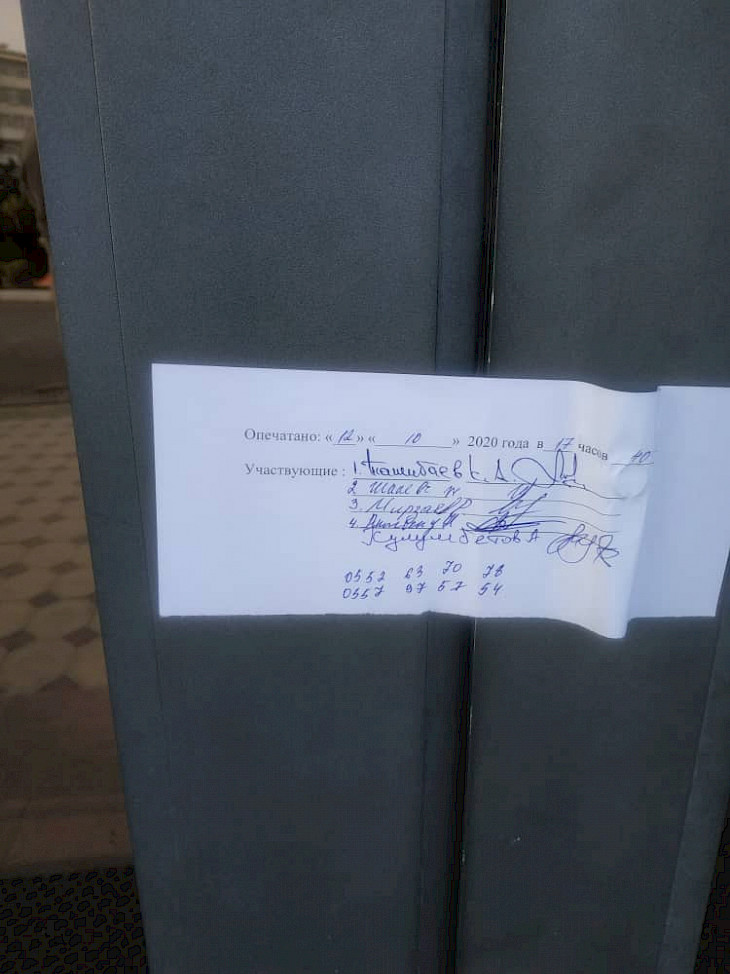 Опечатано: « 12 » « 10 » 2020 года в 17 часов 40
Участвующие : 1. Ташибаев К.А.
2
3. Мирзаев
4.
Кулумбетов А
0552 63 70 78
0557 97 57 54